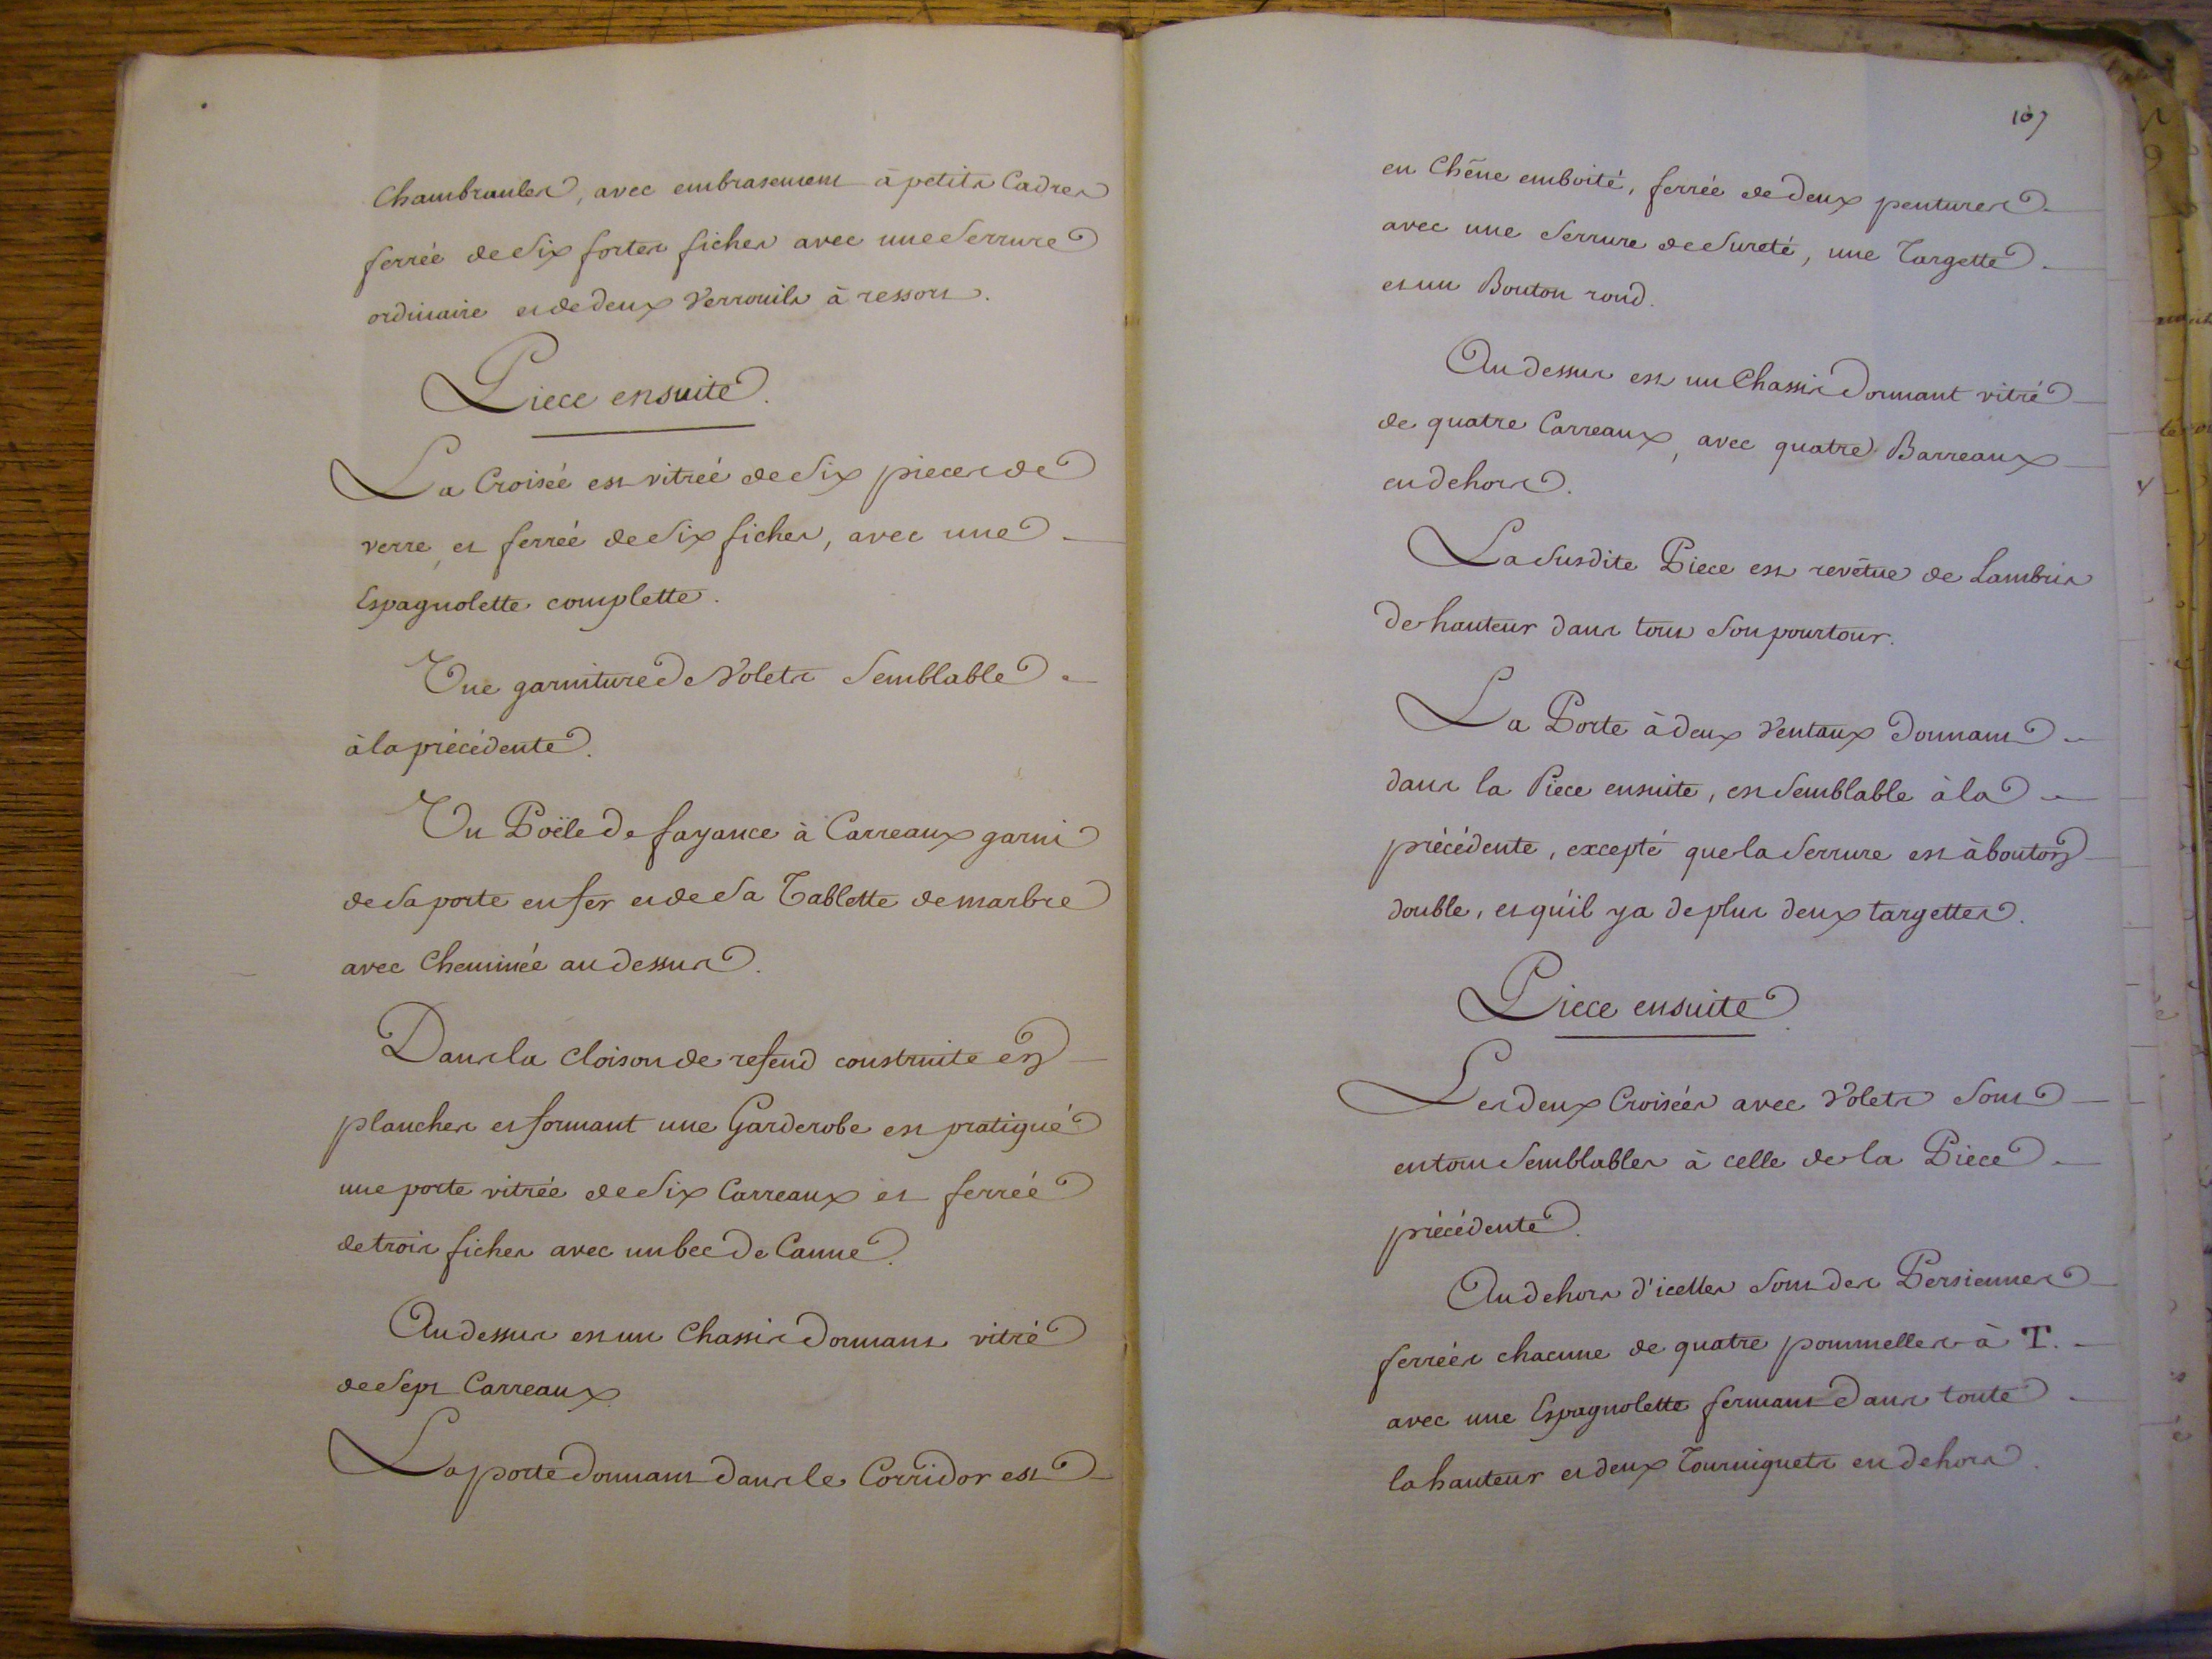 Chambranles, avec embrasement à petits Cadres
ferrée de Six fortes fiches avec une Serrure
ordinaire et de deux Verrouils à ressort.
Piece ensuite.
La Croisée est vitrée de Six pieces de
verre, et ferrée de Six fiches, avec une
Espagnolette complette.
Une garniture de Volets Semblable
à la précédente.
Un Poële de fayance à Carreaux garni
de Sa porte en fer et de Sa Tablette de marbre
avec Cheminée au dessus.
Dans la cloison de refend construite en
planches et formant une Garderobe est pratiqué
une porte vitrée de Six Carreaux et ferrée
de trois fiches avec un bec de Canne.
Au dessus est un Chassis Dormant vitré
de Sept Carreaux.
La porte Donnant Dans le Corridor est
167
en Chêne emboité, ferrée de Deux pentures
avec une Serrure de Sureté, une Targette
et un Bouton rond.
Au dessus est un Chassis Dormant vitré
de quatre Carreaux, avec quatre Barreaux
en dehors.
La Susdite Piece est revêtue de Lambris
de hauteur dans tout Son pourtour.
La Porte à deux Ventaux Donnant
dans la Piece ensuite, est Semblable à la
précédente, excepté que la Serrure est à bouton
double, et qu'il y a de plus deux targettes.
Piece ensuite.
Les deux Croisées avec Volets Sont
en tout Semblables à celle de la Piece
précédente.
Au dehors d'icelles Sont des Persiennes
ferrées chacune de quatre pommelles à T.
avec une Espagnolette fermant Dans toute
la hauteur et deux Tourniquets en dehors.